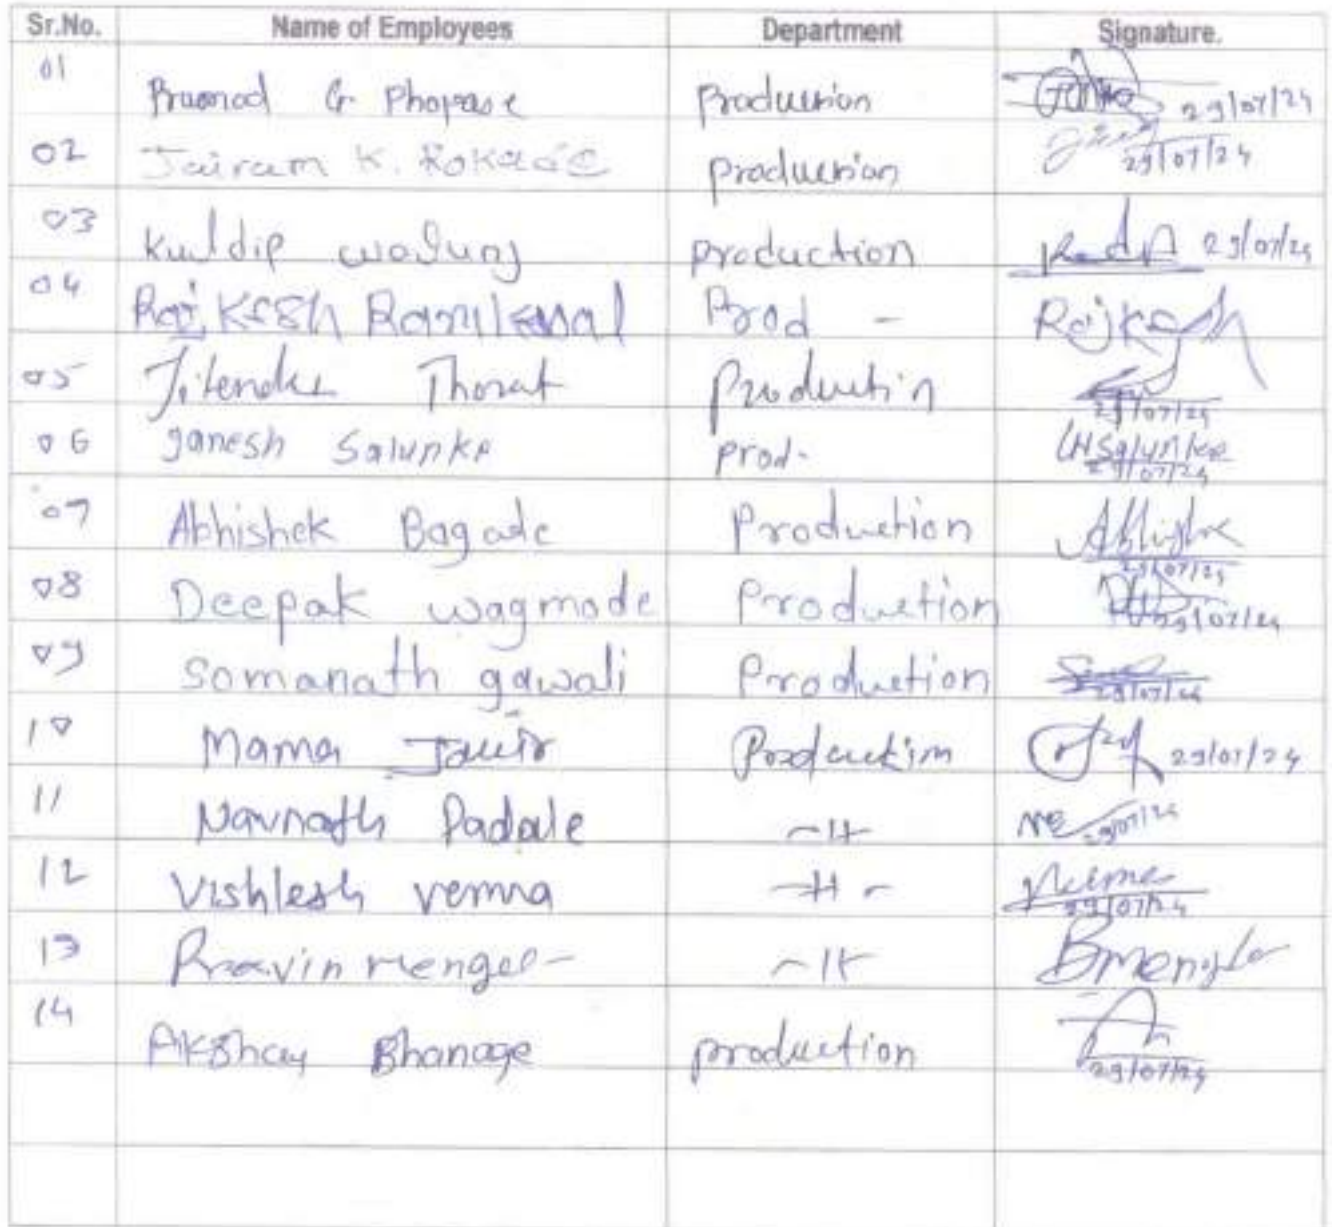 Sr.No. Name of Employees Department Signature.
01 Pramod G. Phopase Production 29/07/24
02 Jairam K. Rokade production 29/07/24
03 Kuldip walunj production 29/07/24
04 Rajkesh Prod - Rajkesh
05 Jitendra Thorat Production 29/07/24
06 ganesh Salunke prod. 29/07/24
07 Abhishek Bagade Production 29/07/24
08 Deepak wagmode Production 29/07/24
09 Somanath gawali Production 29/07/24
10 Mama Production 29/07/24
11 Navnath Padale -11- 29/07/24
12 Vishlesh verma -11- 29/07/24
13 Pravin mengal -11-
14 Akshay Bhanage production 29/07/24